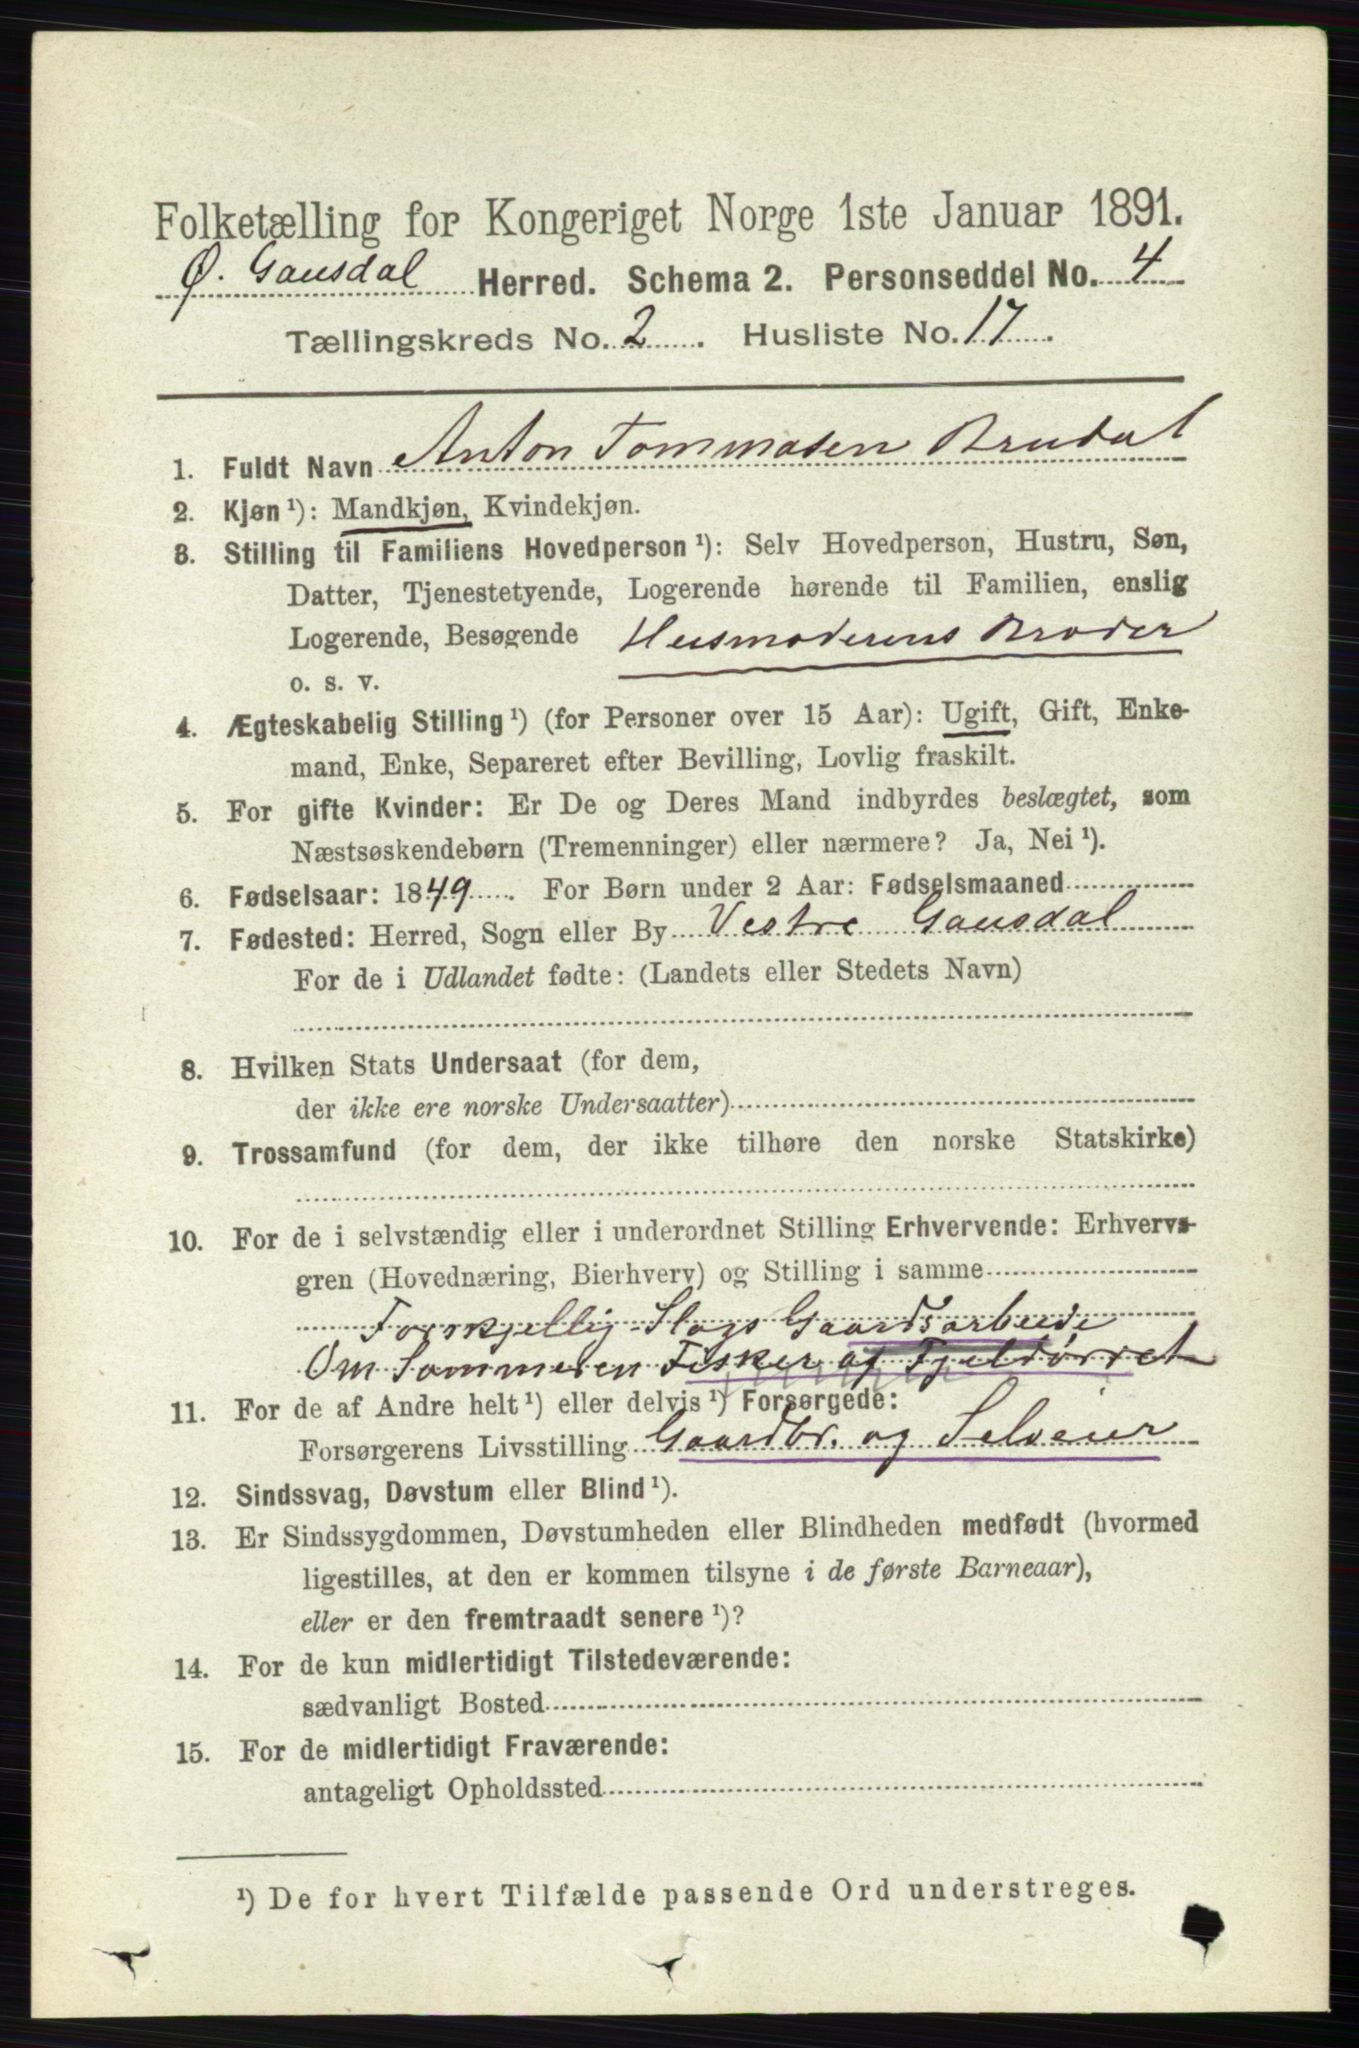 Folketælling for Kongeriget Norge 1ste Januar 1891.
Ø. Gausdal Herred. Schema 2. Personseddel No. 4
Tællingskreds No. 2. Husliste No. 17.
1. Fuldt Navn Anton Tommasen Brudal
2. Kjøn ¹): Mandkjøn, Kvindekjøn.
3. Stilling til Familiens Hovedperson ¹): Selv Hovedperson, Hustru, Søn,
Datter, Tjenestetyende, Logerende hørende til Familien, enslig
Logerende, Besøgende Husmoderens Broder
o. s. v.
4. Ægteskabelig Stilling ¹) (for Personer over 15 Aar): Ugift, Gift, Enke-
mand, Enke, Separeret efter Bevilling, Lovlig fraskilt.
5. For gifte Kvinder: Er De og Deres Mand indbyrdes beslægtet, som
Næstsøskendebørn (Tremenninger) eller nærmere? Ja, Nei ¹).
6. Fødselsaar: 1849. For Børn under 2 Aar: Fødselsmaaned
7. Fødested: Herred, Sogn eller By Vestre Gausdal
For de i Udlandet fødte: (Landets eller Stedets Navn)
8. Hvilken Stats Undersaat (for dem,
der ikke ere norske Undersaatter)
9. Trossamfund (for dem, der ikke tilhøre den norske Statskirke)
10. For de i selvstændig eller i underordnet Stilling Erhvervende: Erhvervs-
gren (Hovednæring, Bierhverv) og Stilling i samme
Forskjellig Slags Gaardsarbeide
Om Sommeren Fisker af Fjeldørret
11. For de af Andre helt ¹) eller delvis ¹) Forsørgede:
Forsørgerens Livsstilling Gaardbr. og Selveier
12. Sindssvag, Døvstum eller Blind ¹).
13. Er Sindssygdommen, Døvstumheden eller Blindheden medfødt (hvormed
ligestilles, at den er kommen tilsyne i de første Barneaar),
eller er den fremtraadt senere ¹)?
14. For de kun midlertidigt Tilstedeværende:
sædvanligt Bosted
15. For de midlertidigt Fraværende:
antageligt Opholdssted
¹) De for hvert Tilfælde passende Ord understreges.